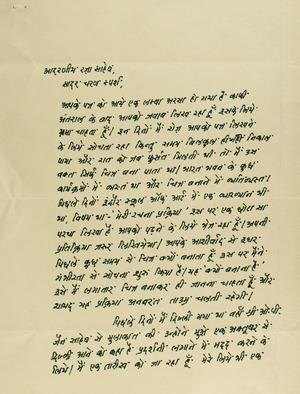 आदरणीय रज़ा साहेब,
सादर चरण स्पर्श.
आपके पत्र को आये एक लम्बा अरसा हो गया है. काफी
अंतराल के बाद आपको जवाब लिख रहा हूँ. इसके लिये
क्षमा चाहता हूँ। इन दिनों में रोज़ आपको पत्र लिखने
के लिये सोचता रहा किन्तु समय बिलकुल ही नहीं निकाल
पाया और रात को जब फुर्सत मिलती थी. तो मैं उस
वक्त सिर्फ चित्र बना पाता था। भारत भवन के कुछ
कार्यक्रमों में व्यस्त था और चित्र बनाने में व्यतिव्यस्त।
पिछले दिनों इंदौर स्कूल ऑफ़ आर्ट में एक व्याख्यान भी
था, विषय था- 'मेरी रचना प्रक्रिया' इस पर एक छोटा सा
परचा लिखा है आपको पढ़ने के लिये भेज रहा हूँ। अपनी
प्रतिक्रिया ज़रूर लिखियेगा। आपके आशीर्वाद से इधर
पिछले कुछ समय से चित्र क्यों बनाता हूँ इस पर मैंने
गंभीरता से सोचना शुरू किया है। यह क्यों बनाता है.
इसे मैं लगातार चित्र बनाकर ही जानना चाहता हूँ और
शायद यह प्रक्रिया अनवरत ताउम्र चलती रहेगी।
पिछले दिनों मैं दिल्ली गया था वहाँ श्री ओ.पी.
जैन साहेब से मुलाकात की उन्होंने मुझे एक अक्टूबर से
दिल्ली आने को कहा है प्रदर्शनी लगाने में मदद करने के
लिये। मैं एक तारीख को जा रहा हूँ। मेरे लिये भी एक